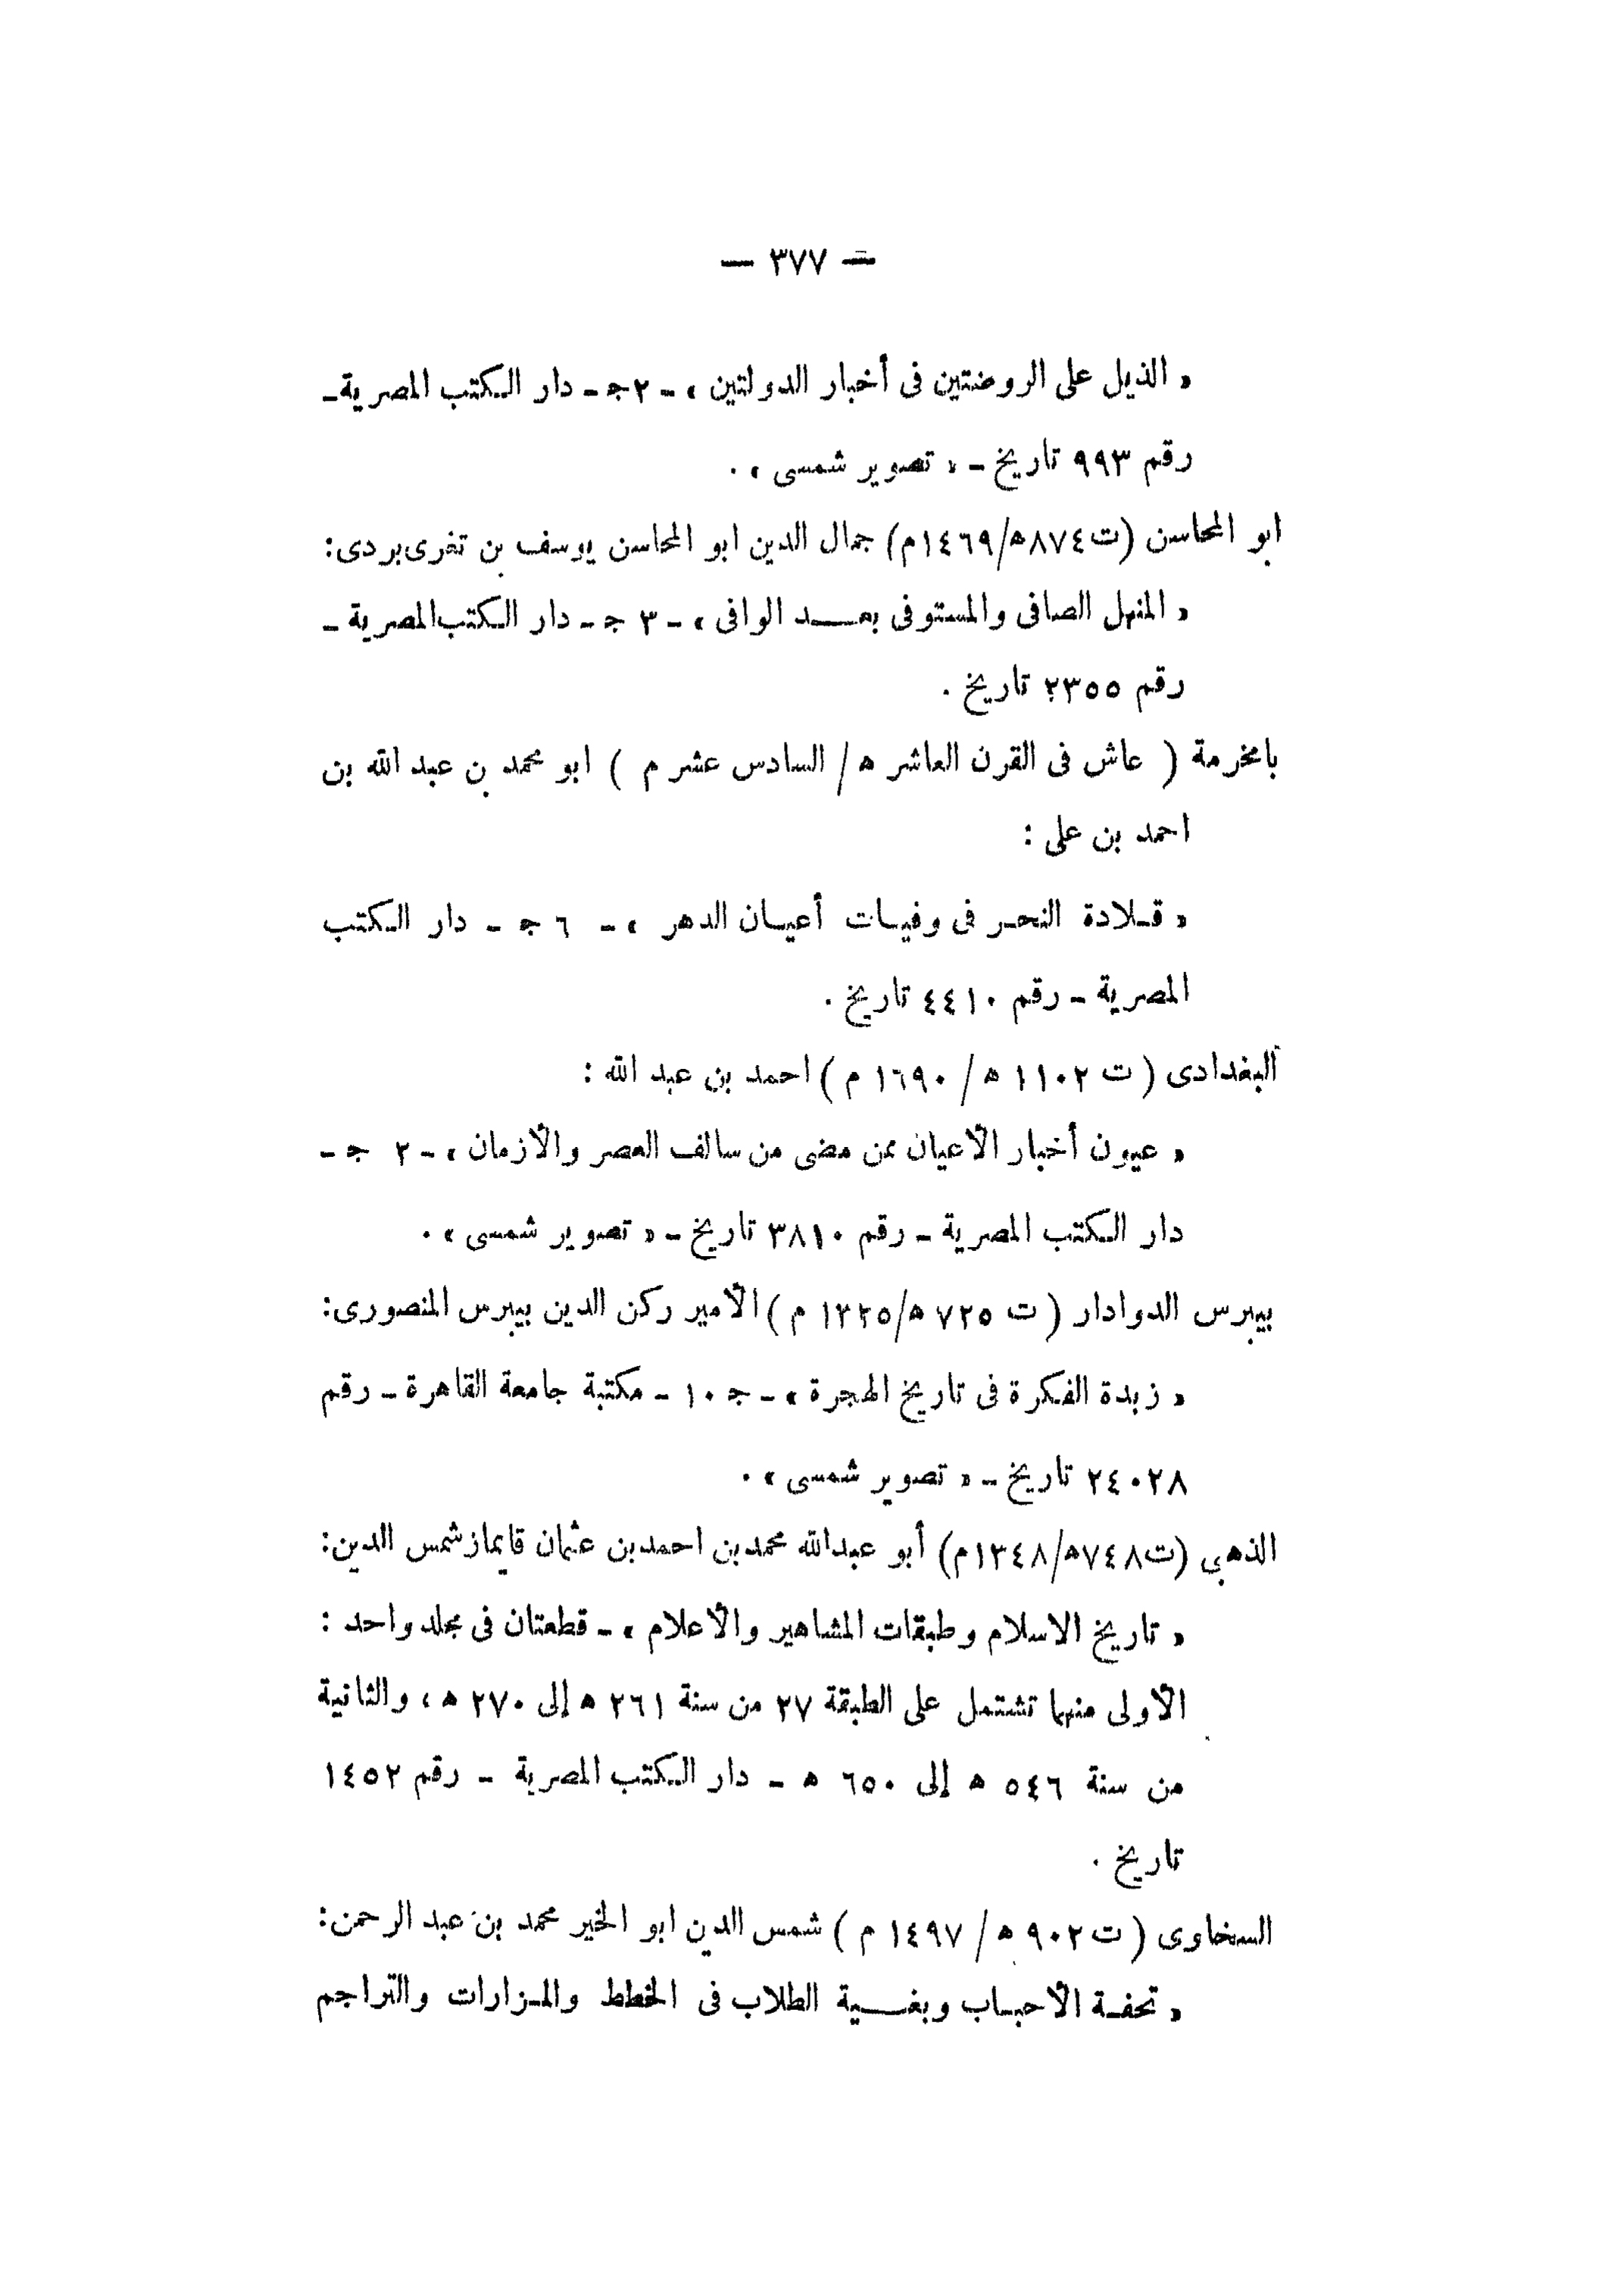 — ٣٧٧ —
« الذيل على الروضتين فى أخبار الدولتين » ـ ٢ج ـ دار الكتب المصرية ـ
رقم ٩٩٣ تاريخ ـ « تصوير شمسى » .
ابو المحاسن (ت٨٧٤ه/١٤٦٩م) جمال الدين ابو المحاسن يوسف بن تغرى بردى:
« المنهل الصافى والمستوفى بعـــد الوافى » ـ ٣ ج ـ دار الكتب المصرية ـ
رقم ٢٣٥٥ تاريخ .
بامخرمة ( عاش فى القرن العاشر ه / السادس عشر م ) ابو محمد بن عبد الله بن
احمد بن على :
« قـلادة النحـر فى وفيـات أعيـان الدهر » ـ ٦ ج ـ دار الكتب
المصرية ـ رقم ٤٤١٠ تاريخ .
البغدادى ( ت ١١٠٢ ه / ١٦٩٠ م ) احمد بن عبد الله :
« عيون أخبار الأعيان ممن مضى من سالف العصر والأزمان » ـ ٢ ج ـ
دار الكتب المصرية ـ رقم ٣٨١٠ تاريخ ـ « تصوير شمسى » .
بيبرس الدوادار ( ت ٧٢٥ ه/١٣٢٥ م ) الأمير ركن الدين بيبرس المنصورى:
« زبدة الفكرة فى تاريخ الهجرة » ـ ج ١٠ ـ مكتبة جامعة القاهرة ـ رقم
٢٤٠٢٨ تاريخ ـ « تصوير شمسى » .
الذهبى (ت٧٤٨ه/١٣٤٨م) أبو عبدالله محمد بن احمد بن عثمان قايماز شمس الدين:
« تاريخ الاسلام وطبقات المشاهير والأعلام » ـ قطعتان فى مجلد واحد :
الأولى منها تشتمل على الطبقة ٢٧ من سنة ٢٦١ ه إلى ٢٧٠ ه ، والثانية
من سنة ٥٤٦ ه إلى ٦٥٠ ه ـ دار الكتب المصرية ـ رقم ١٤٥٢
تاريخ .
السخاوى ( ت ٩٠٢ ه / ١٤٩٧ م ) شمس الدين ابو الخير محمد بن عبد الرحمن:
« تحفـة الأحبـاب وبغـــية الطلاب فى الخطط والمـزارات والتراجم